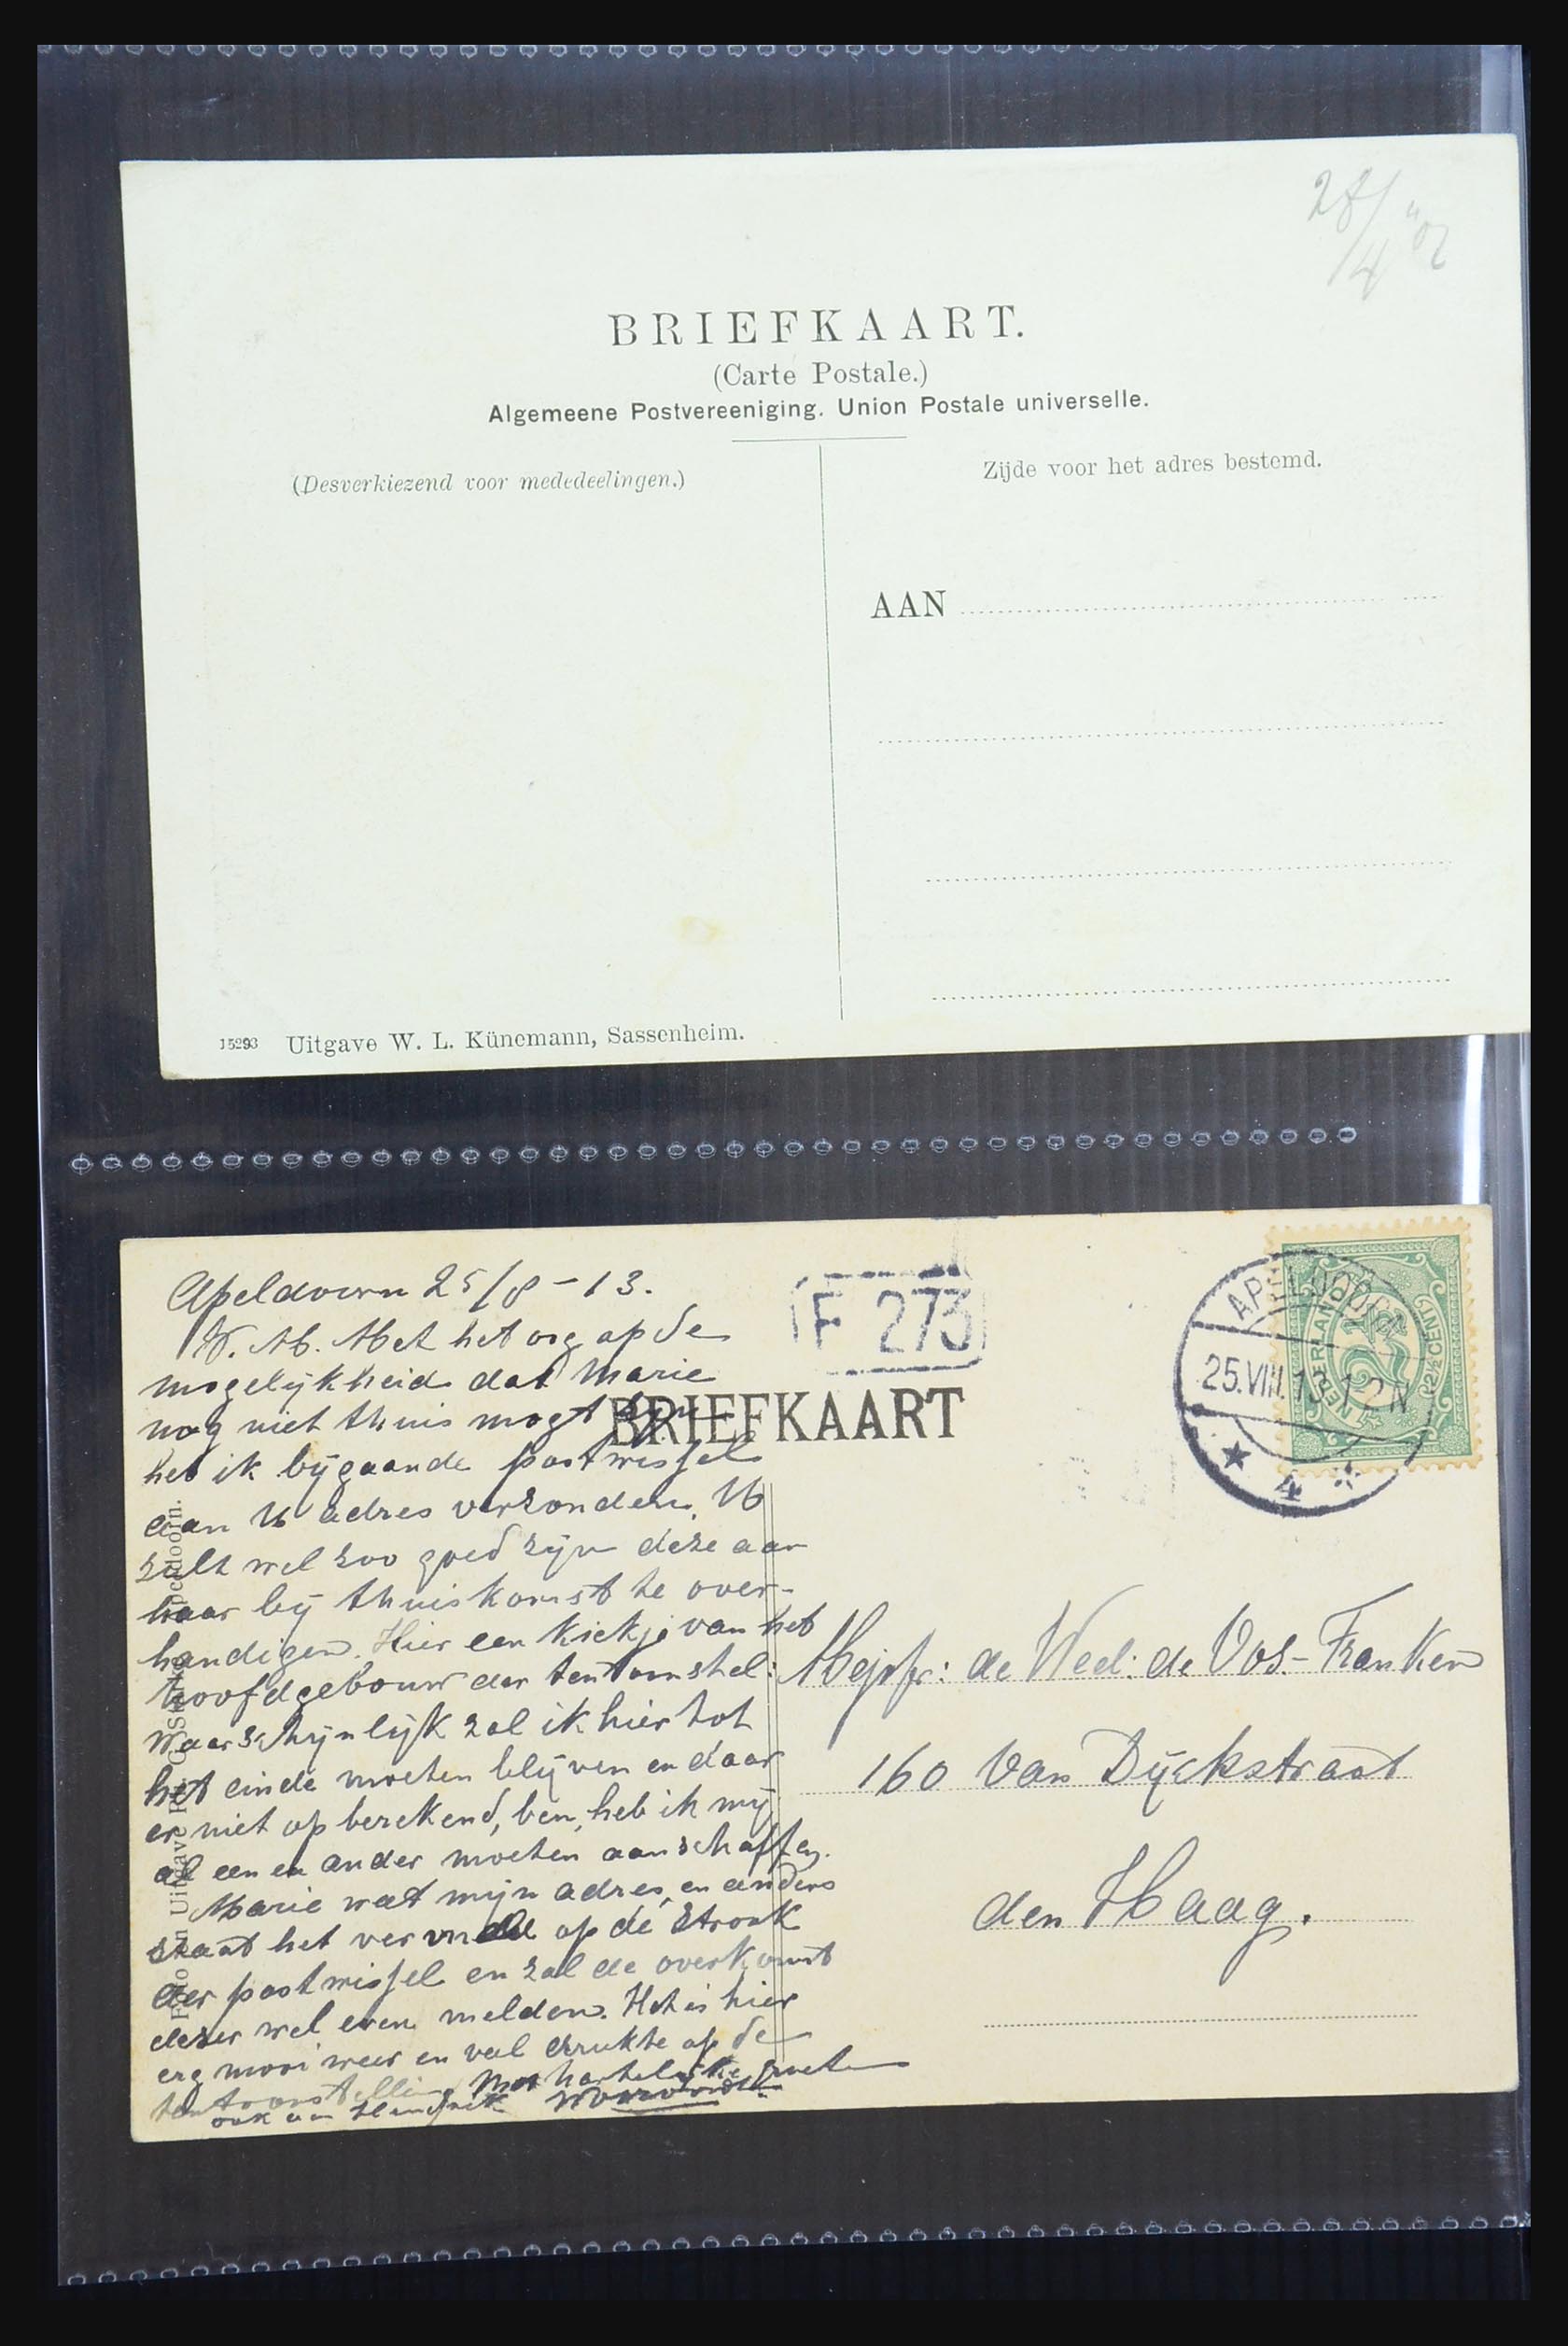 28/4 "02
BRIEFKAART.
(Carte Postale.)
Algemeene Postvereeniging. Union Postale universelle.
(Desverkiezend voor mededeelingen.)
Zijde voor het adres bestemd.
AAN
15293 Uitgave W. L. Künemann, Sassenheim.
Apeldoorn 25/8 - 13.
W. M. Met het oog op de
mogelijkheid dat Marie
nog niet thuis mogt zijn
heb ik bijgaande postwissel
aan U adres verzonden, U
zult wel zoo goed zijn deze aan
haar bij thuiskomst te over-
handigen. Hier een kiekje van het
hoofdgebouw der tentoonstel:
waarschijnlijk zal ik hier tot
het einde moeten blijven en daar
er niet op berekend, ben, heb ik mij
al een en ander moeten aanschaffen.
Marie weet mijn adres, en anders
staat het vermeld op de strook
der postwissel en zal de overkomst
dezer wel even melden. Het is hier
erg mooi weer en veel drukte op de
tentoonstelling Met hartelijke groeten
ook aan Hendrik
F 273
BRIEFKAART
APELDOORN
25.VIII.13.1-2N
4
NEDERLAND
2½
(2½ CENT)
Mejufr: de Wed: de Vos-Franken
160 Van Dijckstraat
den Haag.